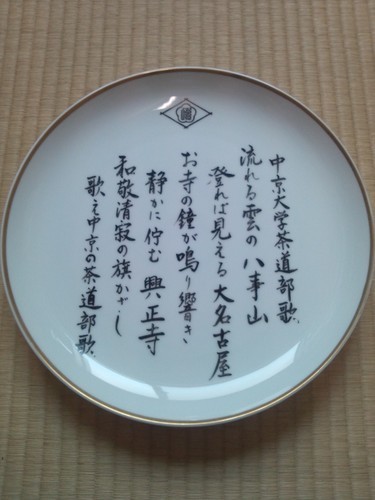 中京大学茶道部歌
流れる雲の八事山
澄れば見える大名古屋
お寺の鐘が鳴り響き
静かに佇む興正寺
和敬清寂の旗かざし
歌え中京の茶道部歌